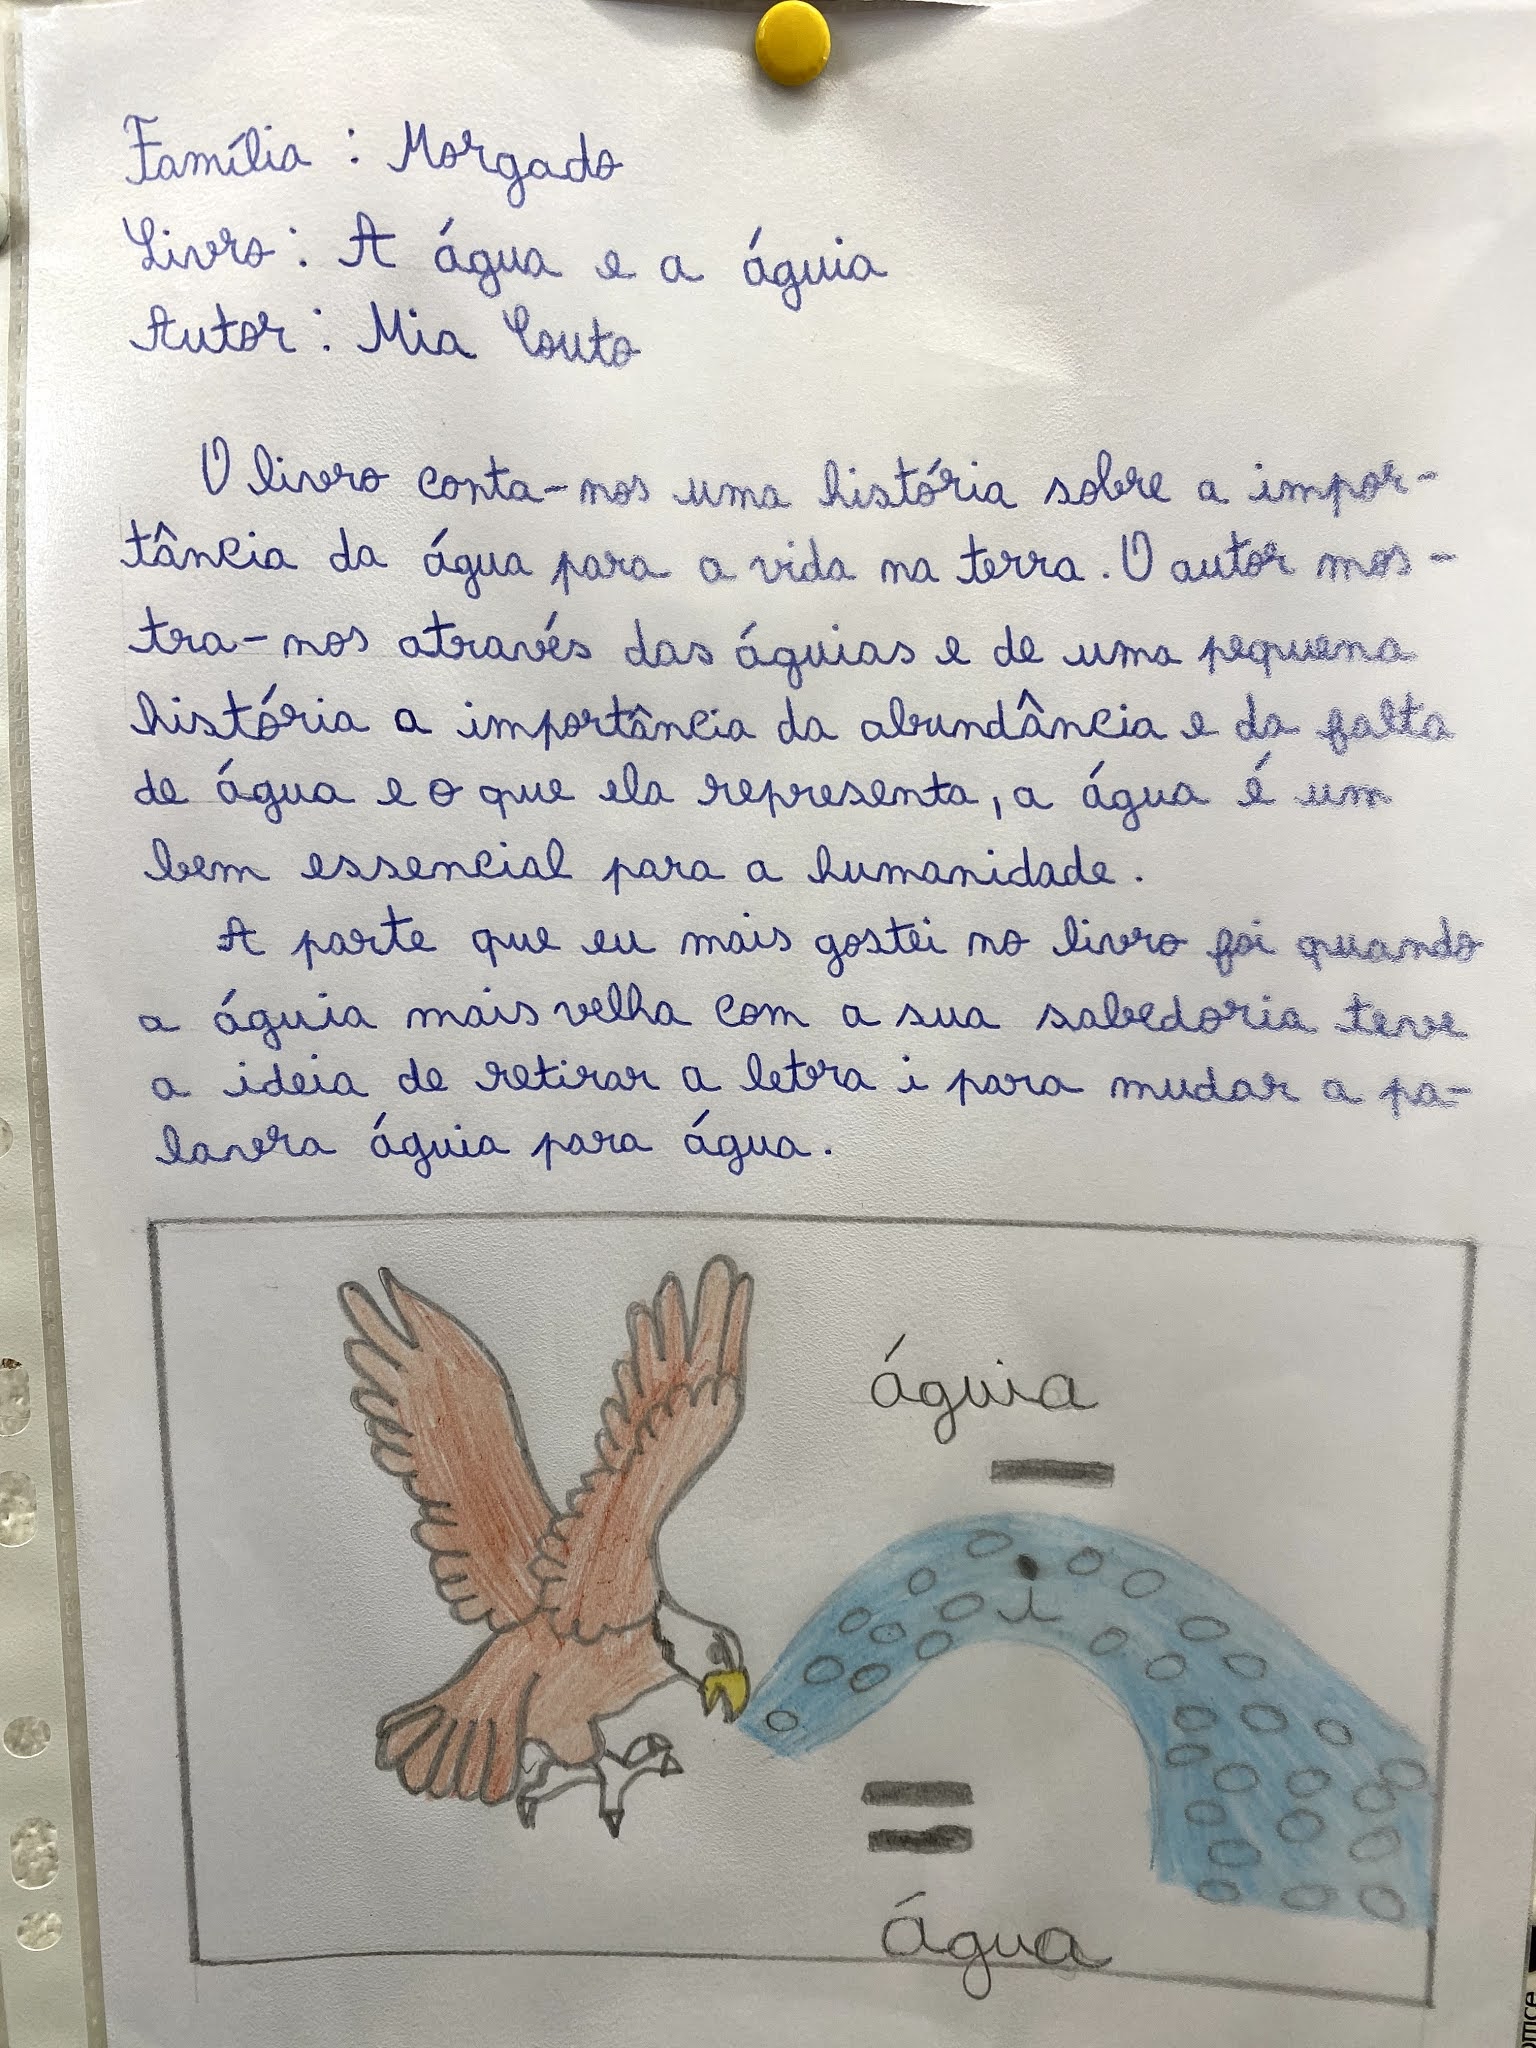 Família : Morgado
Livro : A água e a águia
Autor : Mia Couto
O livro conta-nos uma história sobre a impor-
tância da água para a vida na terra. O autor mos-
tra-nos através das águias e de uma pequena
história a importância da abundância e da falta
de água e o que ela representa, a água é um
bem essencial para a humanidade.
A parte que eu mais gostei no livro foi quando
a águia mais velha com a sua sabedoria teve
a ideia de retirar a letra i para mudar a pa-
lavra águia para água.
águia
—
i
=
água